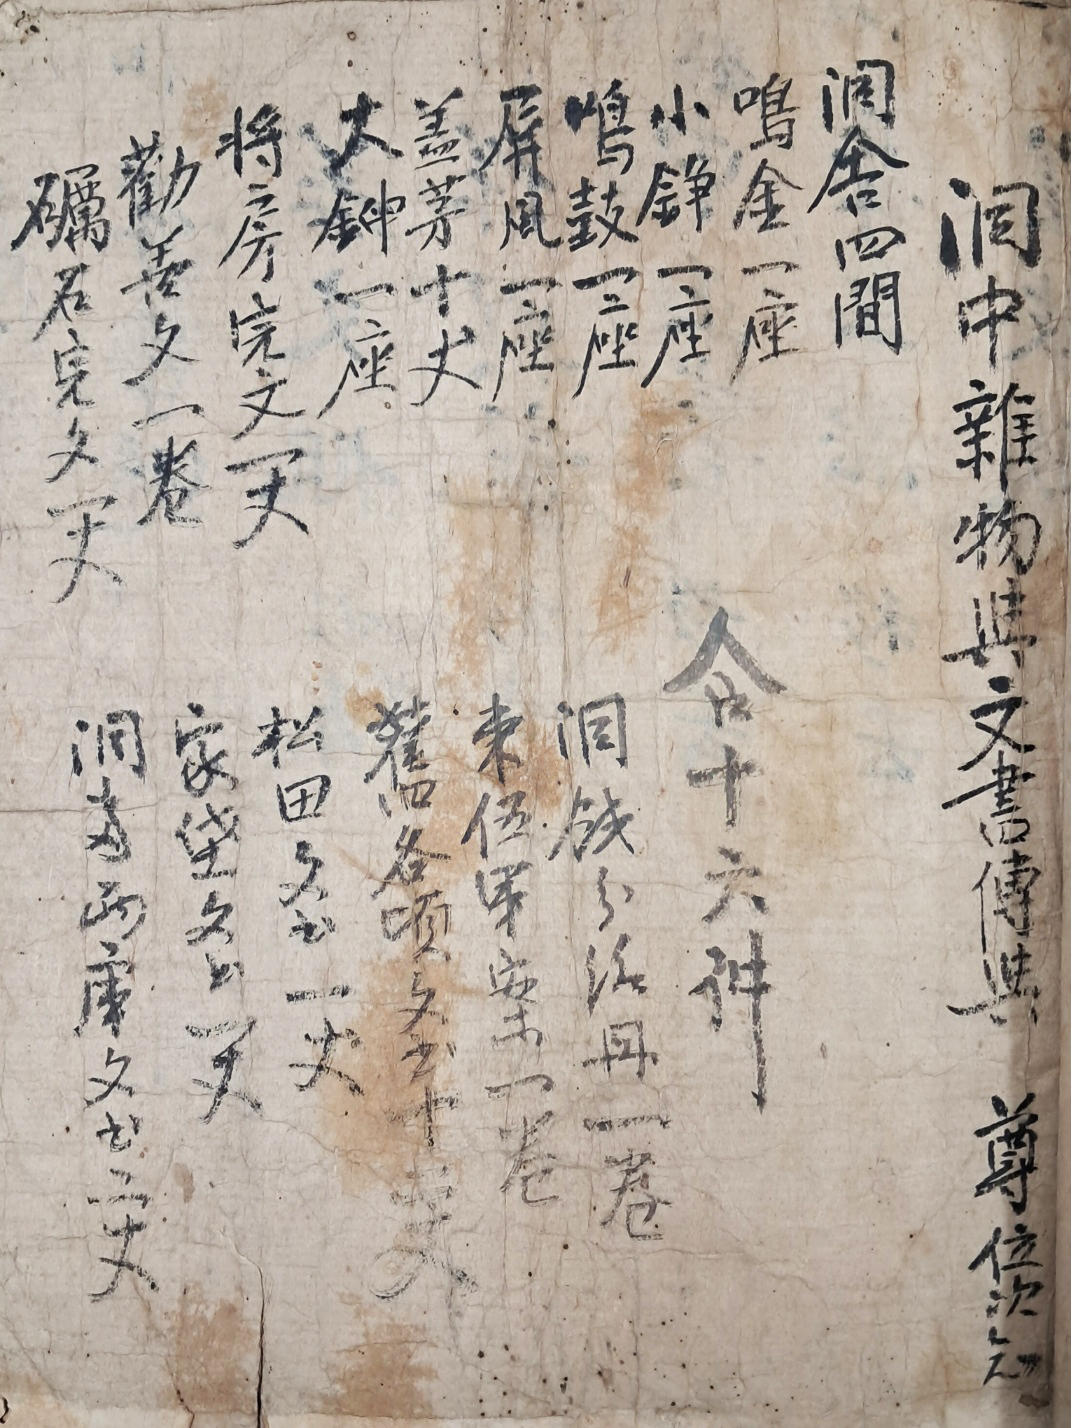 洞中雜物與文書傳與 尊位次知
洞舍四間
鳴金一座
小錚一座
鳴鼓一座
屏風一座
盖芧十丈
大鉀一座
將房完文一丈
勸善文一卷
礪石完文一丈
合十六种
洞錢分派冊一卷
束伍軍案一卷
舊各項文書十丈
松田文書一丈
家垈文書一丈
洞畓西庫文書二丈